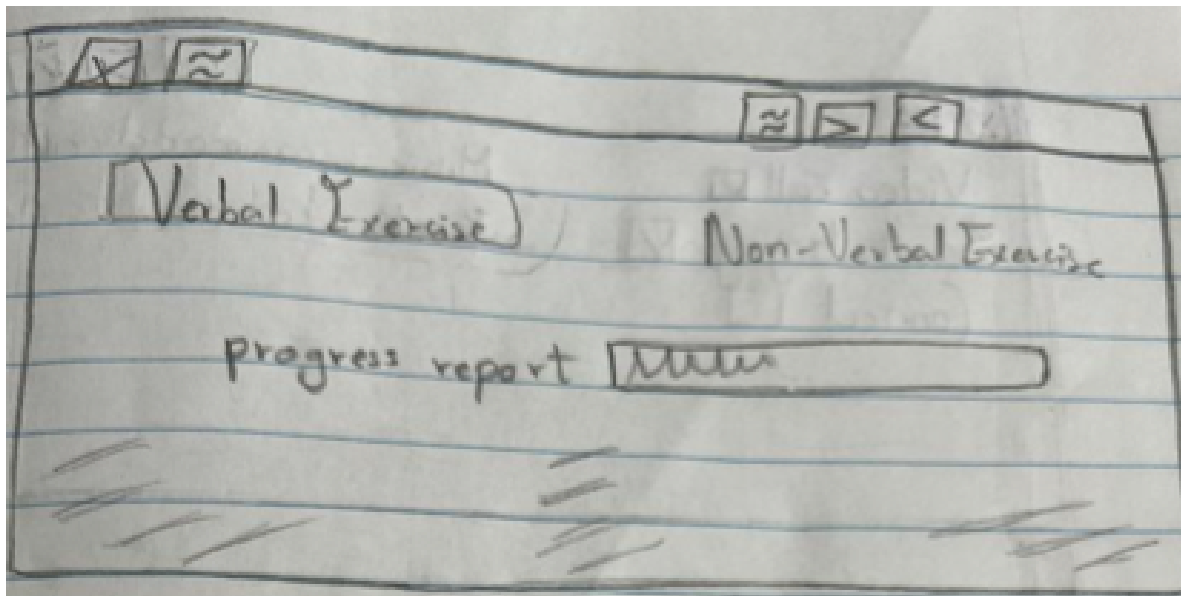 X ≈
≈ > <
Verbal Exercise
Non-Verbal Exercise
progress report